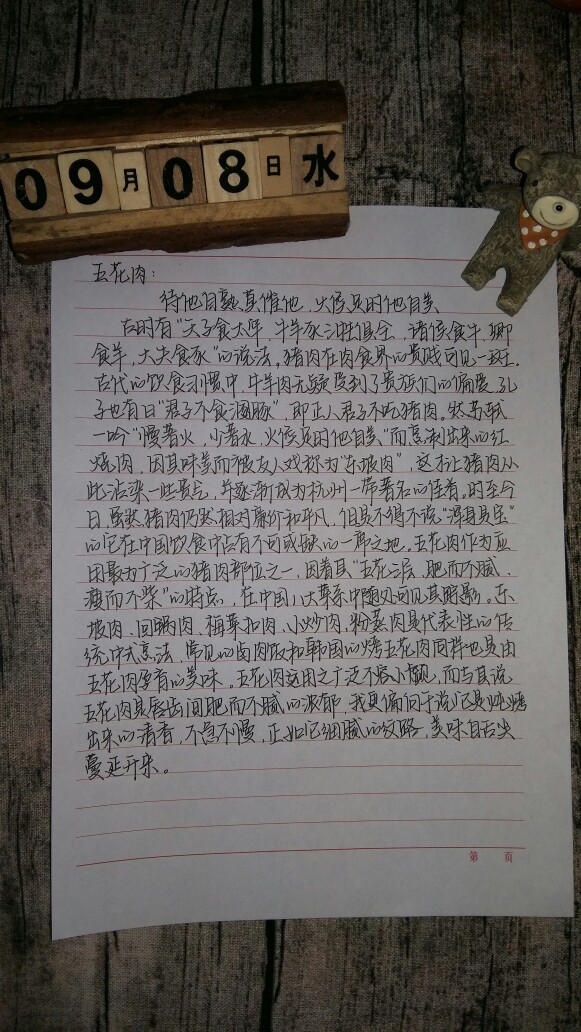 09月08日水
五花肉：
待他自熟莫催他，火候足时他自美
古时有“天子食太牢，牛羊豕三牲俱全，诸侯食牛，卿
食羊，大夫食豕”的说法。猪肉在肉食界的贵贱可见一斑。
古代的饮食习惯中，牛羊肉无疑受到了贵族们的偏爱，孔
子也有曰“君子不食溷豚”，即正人君子不吃猪肉。然苏轼
一吟“慢著火，少著水，火候足时他自美”而烹制出来的红
烧肉，因其味美而被友人戏称为“东坡肉”，这才让猪肉从
此沾染一些贵气，并逐渐成为杭州一带著名的佳肴。时至今
日，虽然猪肉仍然相对廉价和平凡，但是不得不说“浑身是宝”
的它在中国饮食中占有不可或缺的一席之地。五花肉作为应
用最为广泛的猪肉部位之一，因着其“五花三层，肥而不腻，
瘦而不柴”的特点，在中国八大菜系中随处可见其踪影。东
坡肉，回锅肉，梅菜扣肉，小炒肉，粉蒸肉是代表性的传
统中式烹法，常见的卤肉饭和韩国的烤五花肉同样也是由
五花肉孕育的美味。五花肉运用之广泛不容小觑，而与其说
五花肉是唇齿间肥而不腻的浓郁，我更偏向于说它是炖烤
出来的清香，不急不慢，正如它细腻的纹路，美味自舌尖
蔓延开来。
第 页